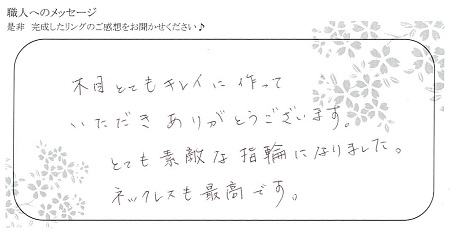 職人へのメッセージ
是非 完成したリングのご感想をお聞かせください♪
木目とてもキレイに作って
いただきありがとうございます。
とても素敵な指輪になりました。
ネックレスも最高です。